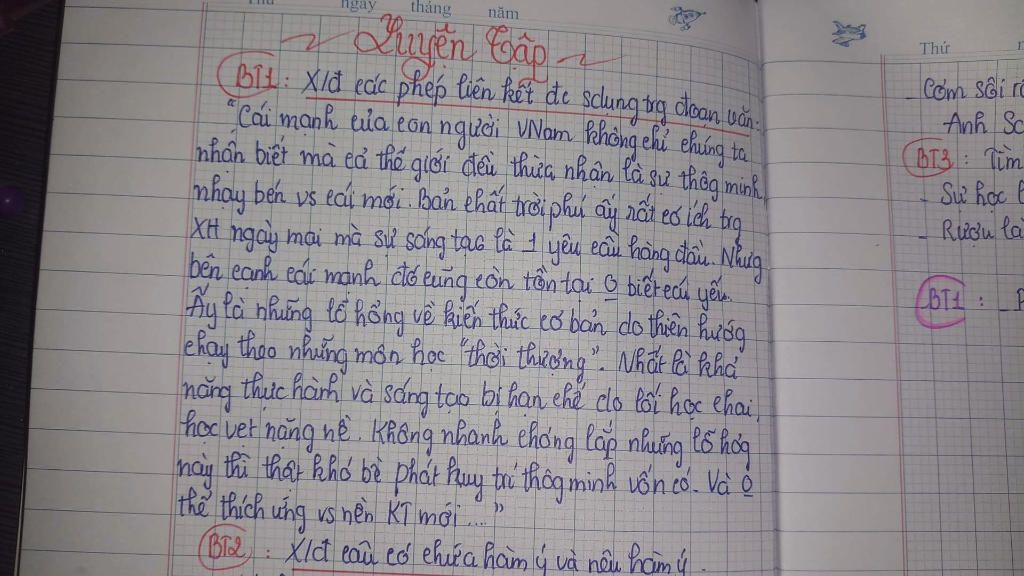 Thứ ngày tháng năm
Luyện Tập
BT1: X/đ các phép liên kết đc sdụng trg đoạn văn:
"Cái mạnh của con người VNam không chỉ chúng ta
nhận biết mà cả thế giới đều thừa nhận là sự thôg minh,
nhạy bén vs cái mới. Bản chất trời phú ấy rất có ích trg
XH ngày mai mà sự sáng tạo là 1 yêu cầu hàng đầu. Nhưg
bên cạnh cái mạnh đó cũng còn tồn tại 0 biết cái yếu.
Ấy là những lỗ hổng về kiến thức cơ bản do thiên hướg
chạy theo những môn học "thời thượng". Nhất là khả
năng thực hành và sáng tạo bị hạn chế do lối học chai,
học vẹt nặng nề. Không nhanh chóng lấp những lỗ hổg
này thì thật khó bề phát huy trí thôg minh vốn có. Và 0
thể thích ứng vs nền KT mới ..."
BT2: X/đ câu có chứa hàm ý và nêu hàm ý.
Thứ
- Cơm sôi rồ
Anh Sá
BT3: Tìm
- Sự học l
- Rượu là
BT1: -